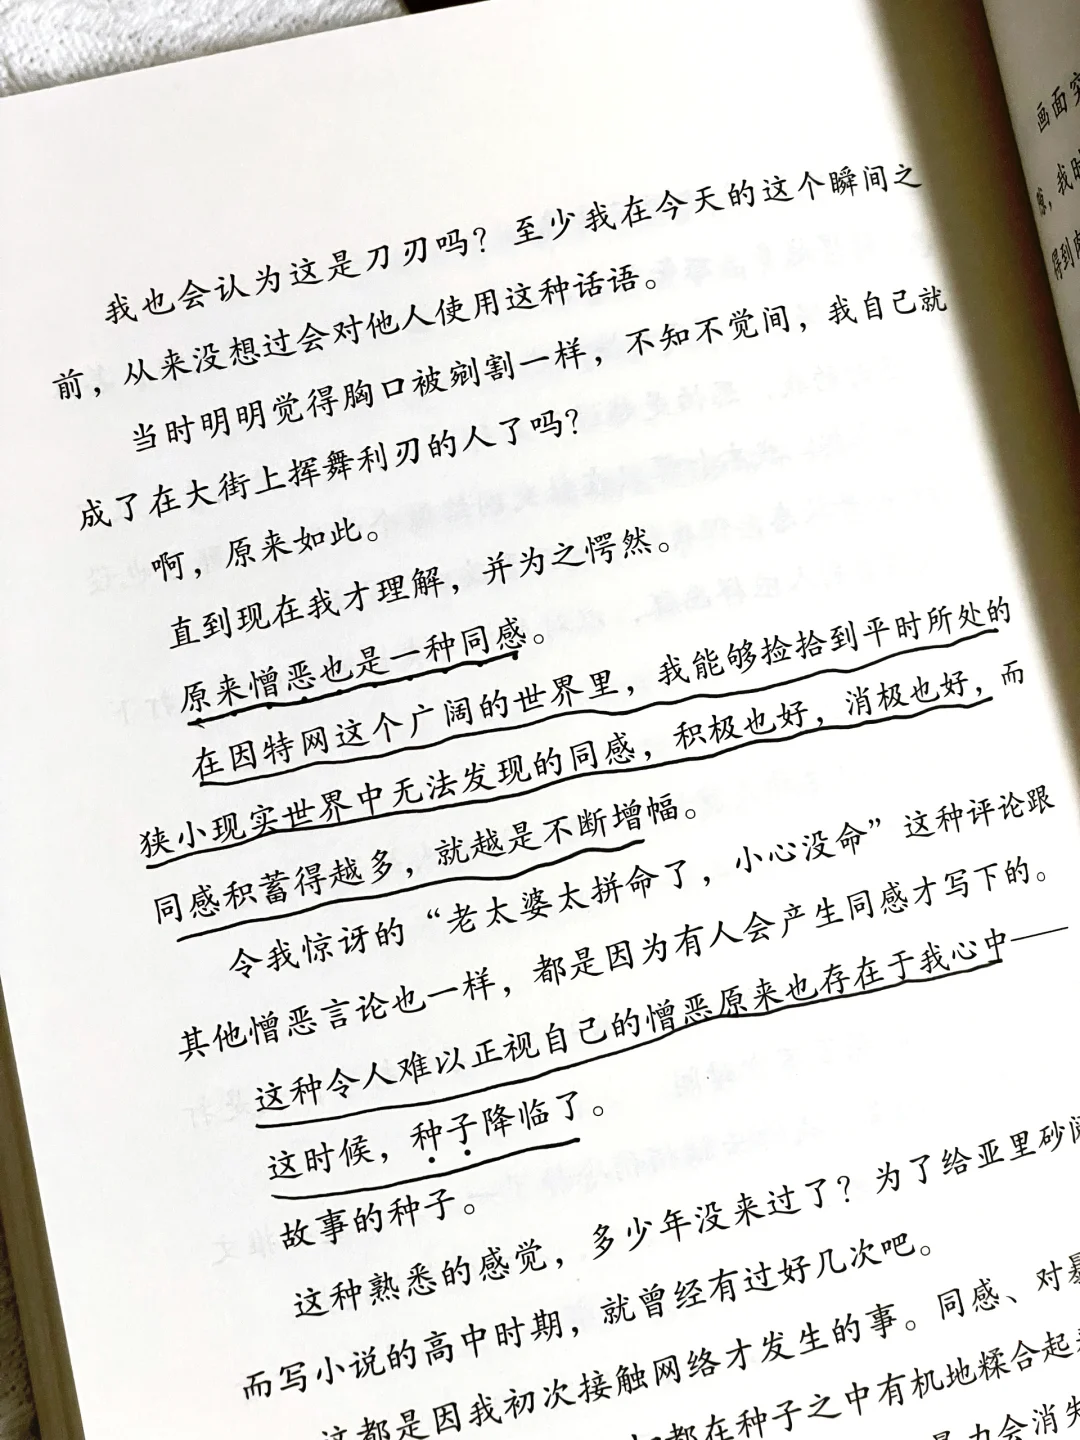 我也会认为这是刀刃吗？至少我在今天的这个瞬间之
前，从来没想过会对他人使用这种话语。
当时明明觉得胸口被剜割一样，不知不觉间，我自己就
成了在大街上挥舞利刃的人了吗？
啊，原来如此。
直到现在我才理解，并为之愕然。
原来憎恶也是一种同感。
在因特网这个广阔的世界里，我能够捡拾到平时所处的
狭小现实世界中无法发现的同感，积极也好，消极也好，而
同感积蓄得越多，就越是不断增幅。
令我惊讶的“老太婆太拼命了，小心没命”这种评论跟
其他憎恶言论也一样，都是因为有人会产生同感才写下的。
这种令人难以正视自己的憎恶原来也存在于我心中——
这时候，种子降临了。
故事的种子。
这种熟悉的感觉，多少年没来过了？为了给亚里砂阅
而写小说的高中时期，就曾经有过好几次吧。
这都是因我初次接触网络才发生的事。同感、对暴
都在种子之中有机地糅合起来
力会消失
画面突
我时
得到